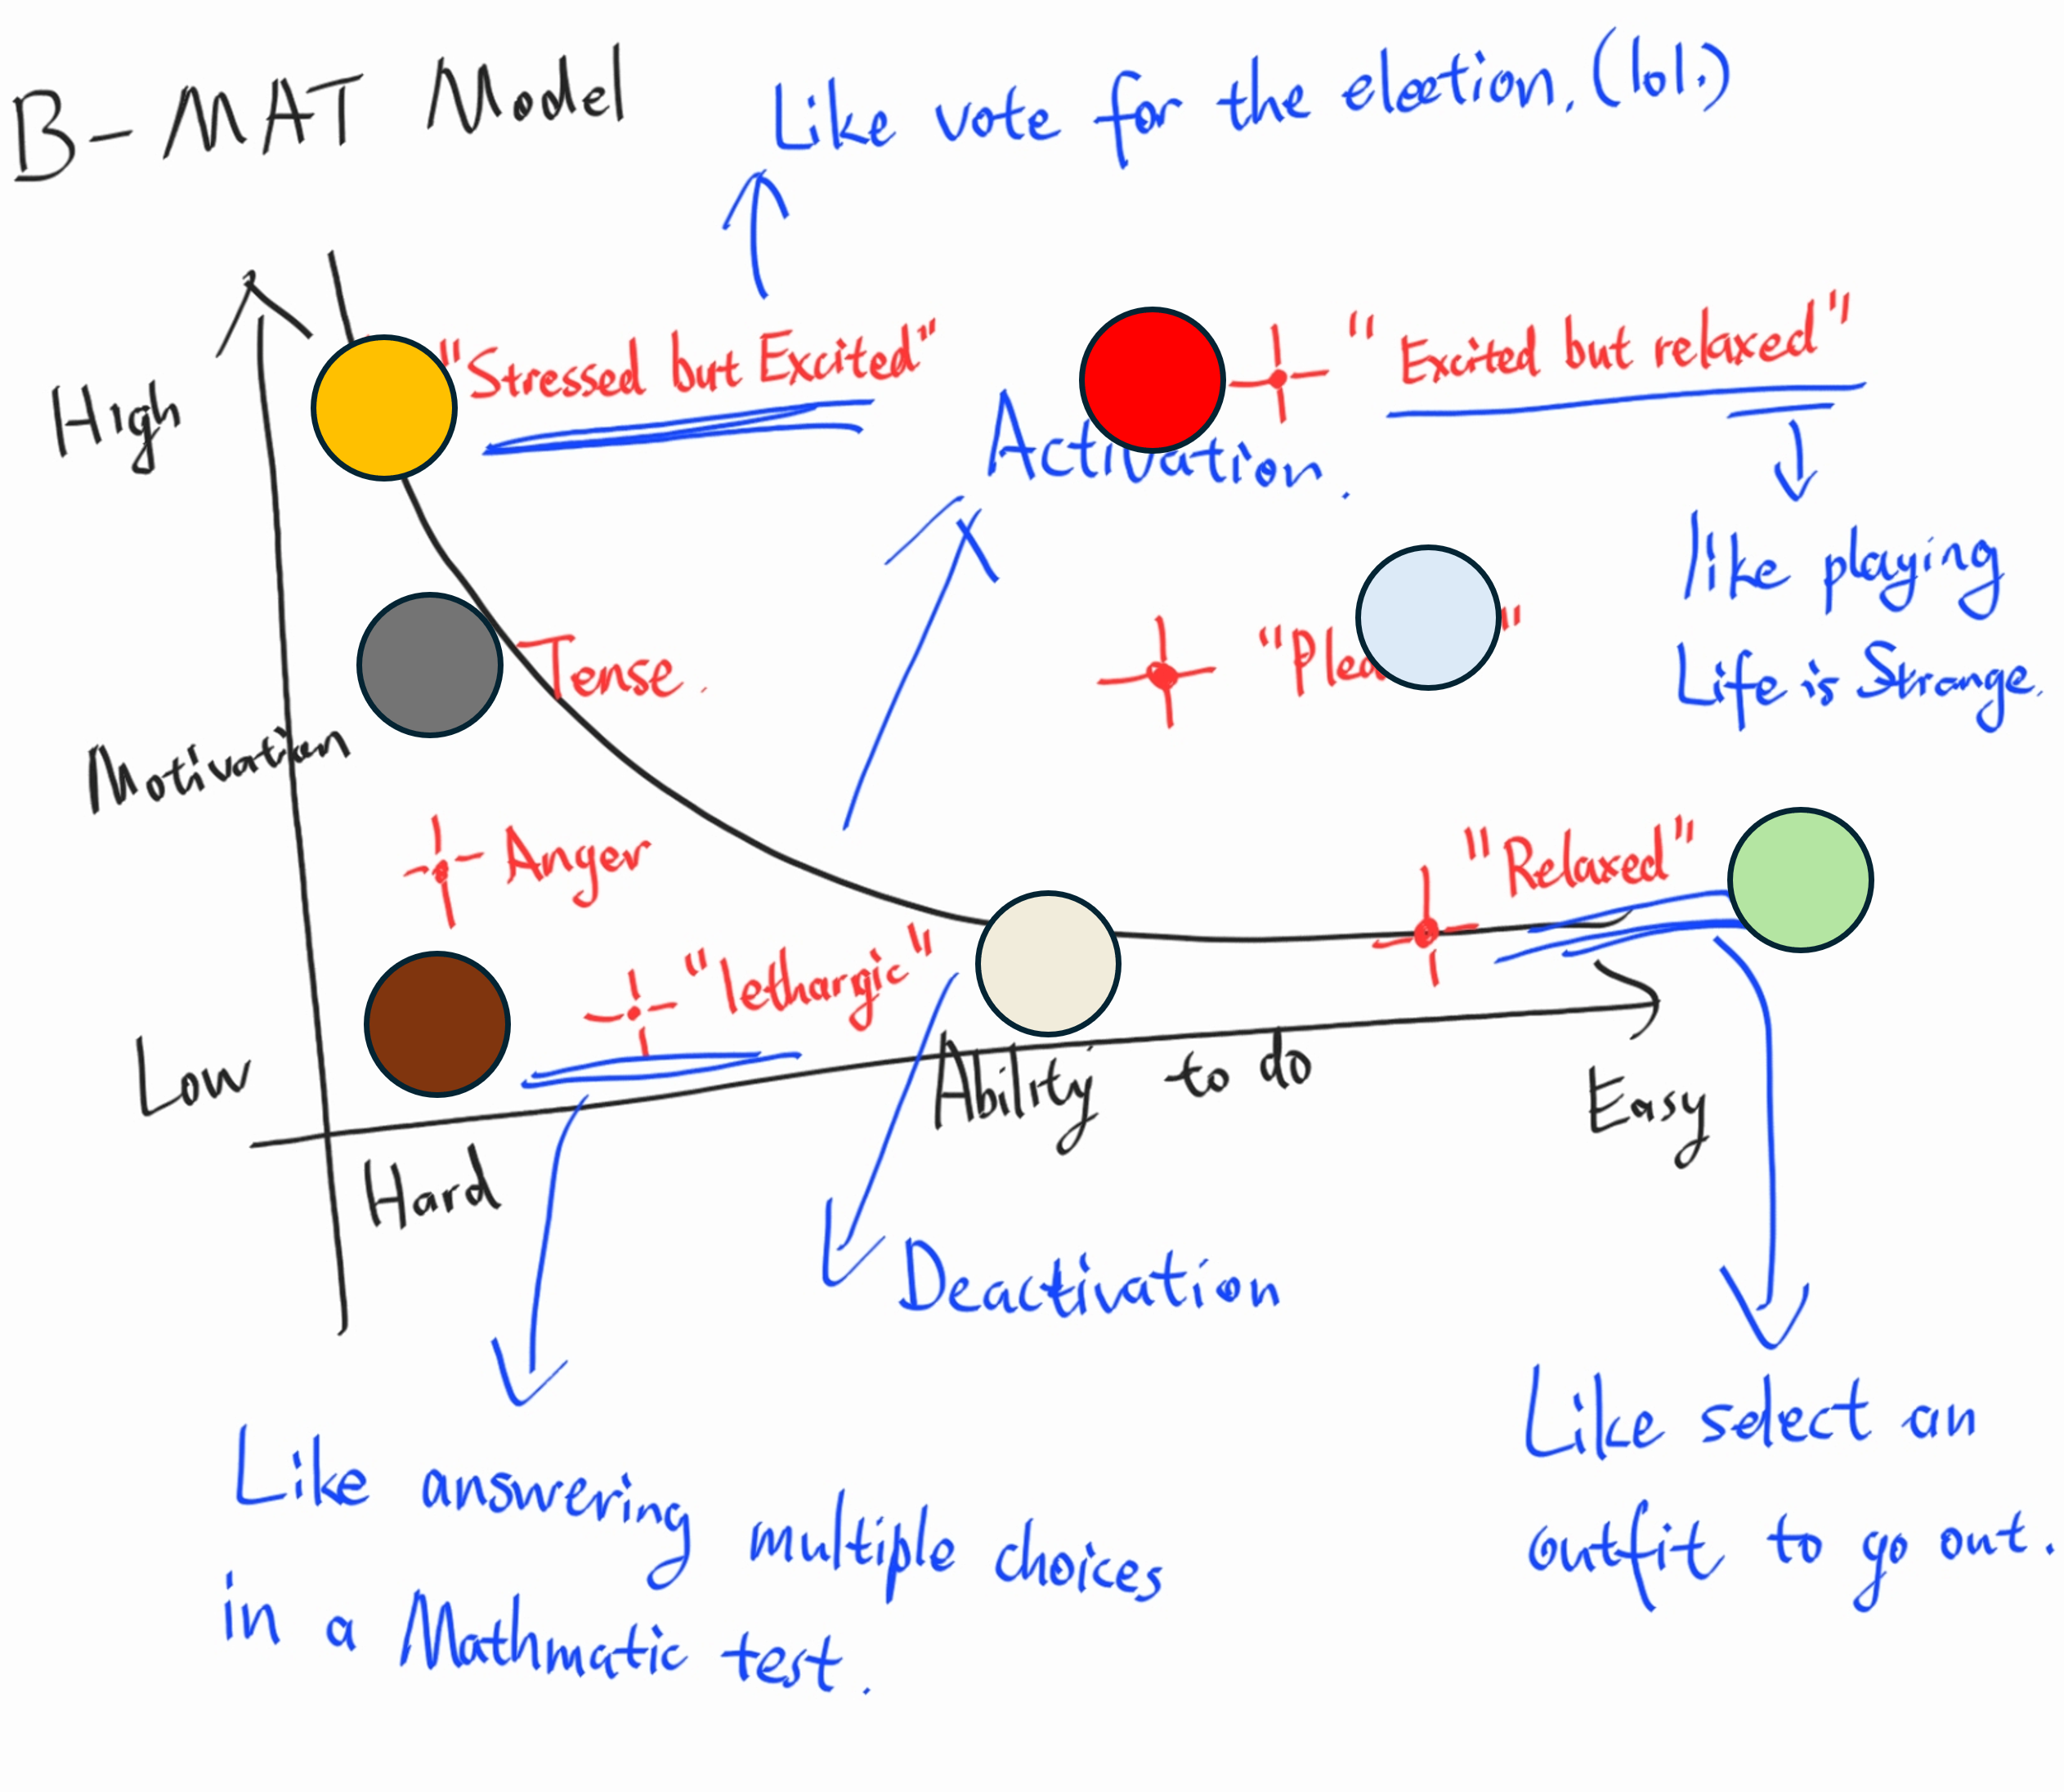 B-MAT Model
Like vote for the election. (lol.)
High
"Stressed but Excited"
"Excited but relaxed"
Activation.
like playing
Life is Strange.
Tense.
Motivation
Anger
"Relaxed"
"lethargic"
Low
Ability to do
Easy
Hard
Deactivation
Like answering multiple choices
in a Mathmatic test.
Like select an
outfit to go out.